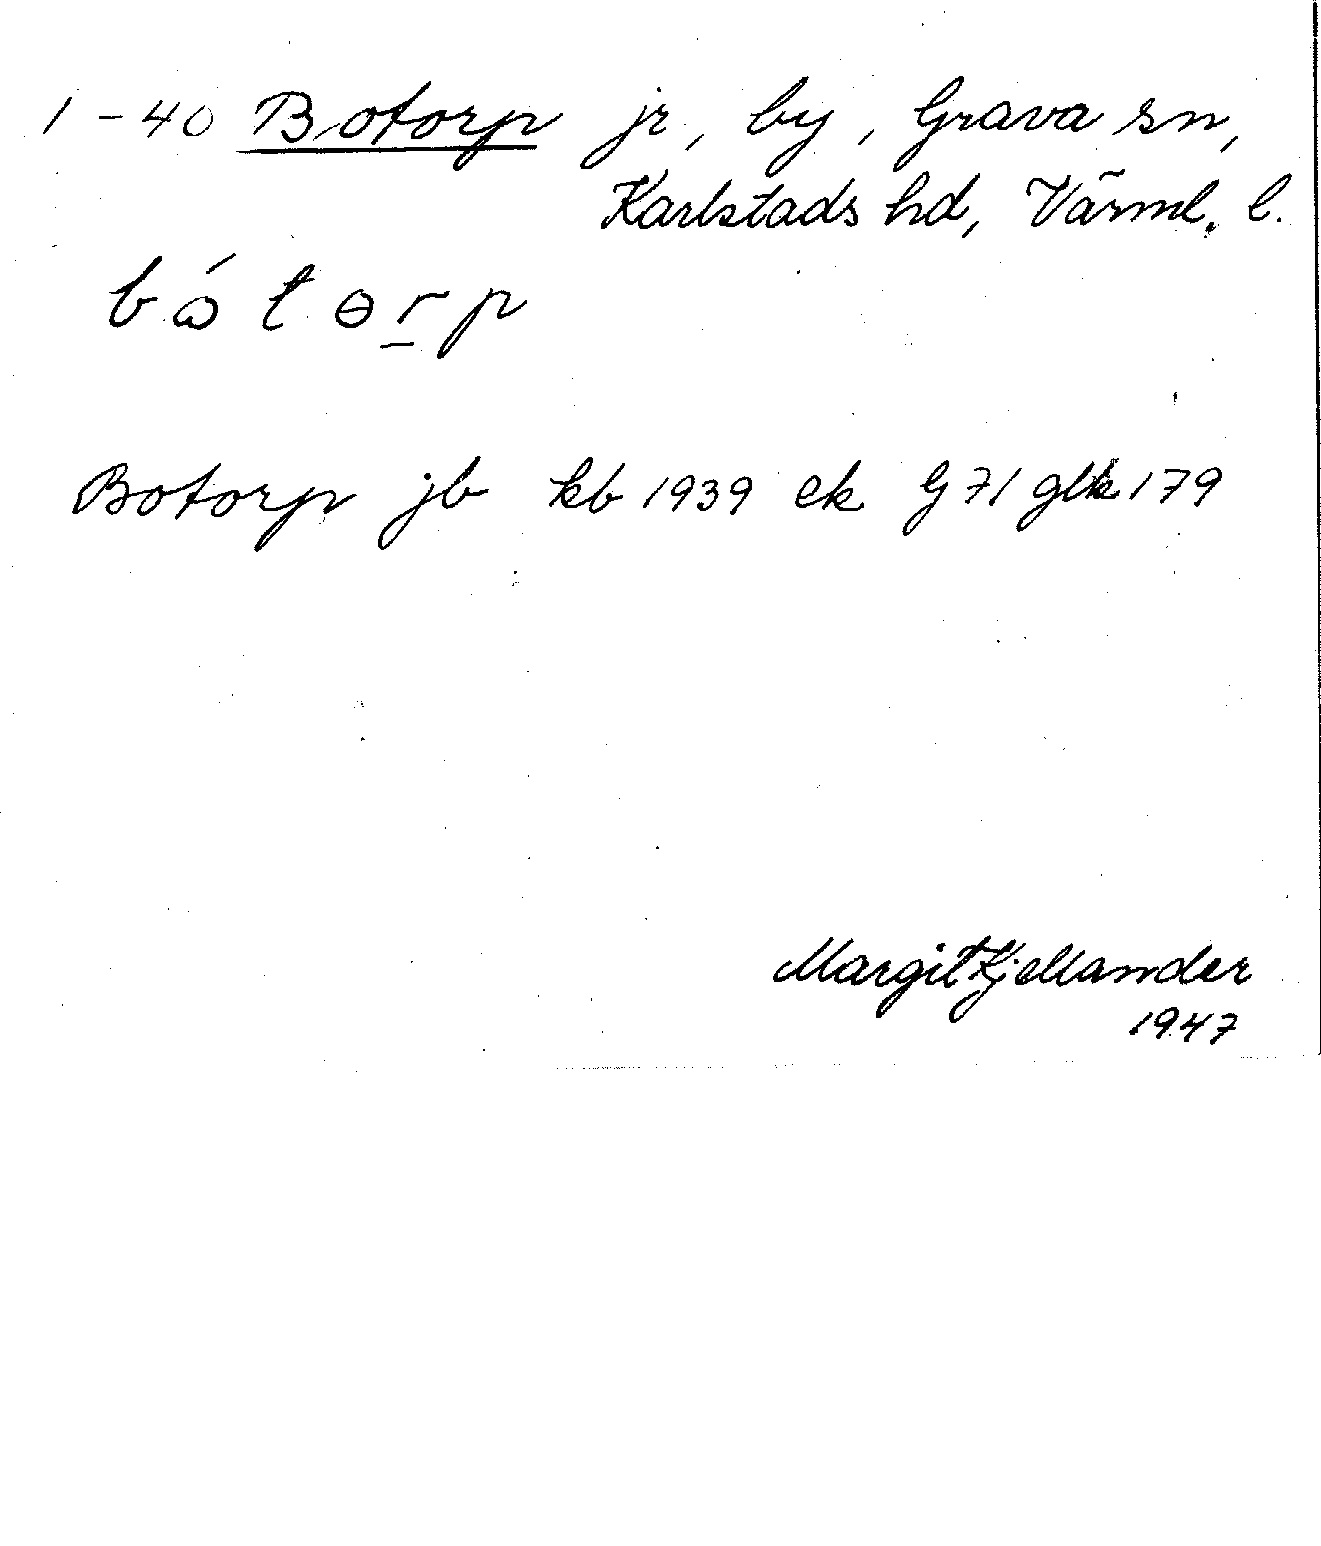 1-40 Botorp jr, by, Grava sn,
Karlstads hd, Värml. l.
bω´tɵr̲p
Botorp jb kb 1939 ek G71 glk 179
Margit Kjellander
1947